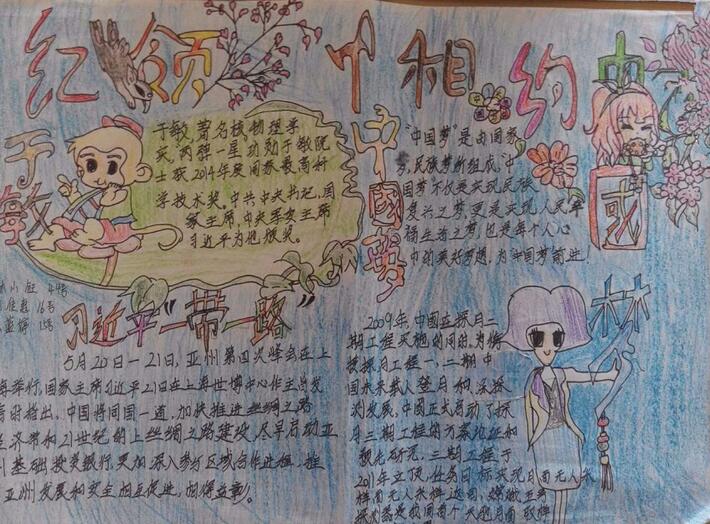 红领巾相约中国梦
于敏
于敏著名核物理学
家。两弹一星功勋于敏院
士获2014年度国家最高科
学技术奖。中共中央书记、国
家主席,中央军委主席
习近平为他颁奖。
中國夢
"中国梦"是由国家
梦,民族梦所组成,中
国梦不仅是实现民族
复兴之梦,更是实现人民幸
福生活之梦,也是每个人心
中的美好梦想,为中国梦前进!
44号
16号
15号
习近平"一带一路"
5月20日一21日,亚洲第四次峰会在上
海举行,国家主席习近平21日在上海世博中心作主旨发
言时指出,中国将同国一道,加快推进丝绸之路
经济带和21世纪海上丝绸之路建设,尽早启动亚
洲基础投资银行,更加深入参与区域合作进程,推
亚洲发展和安全相互促进,相得益彰。
2009年,中国在探月二
期工程实施的同时,为衔
接探月工程一,二期,中
国未来载人登月和深空
测发展,中国正式启动了探
月三期工程的方案论证和
预先研究。三期工程于
2011年立项,任务目标实现月面无人采
样